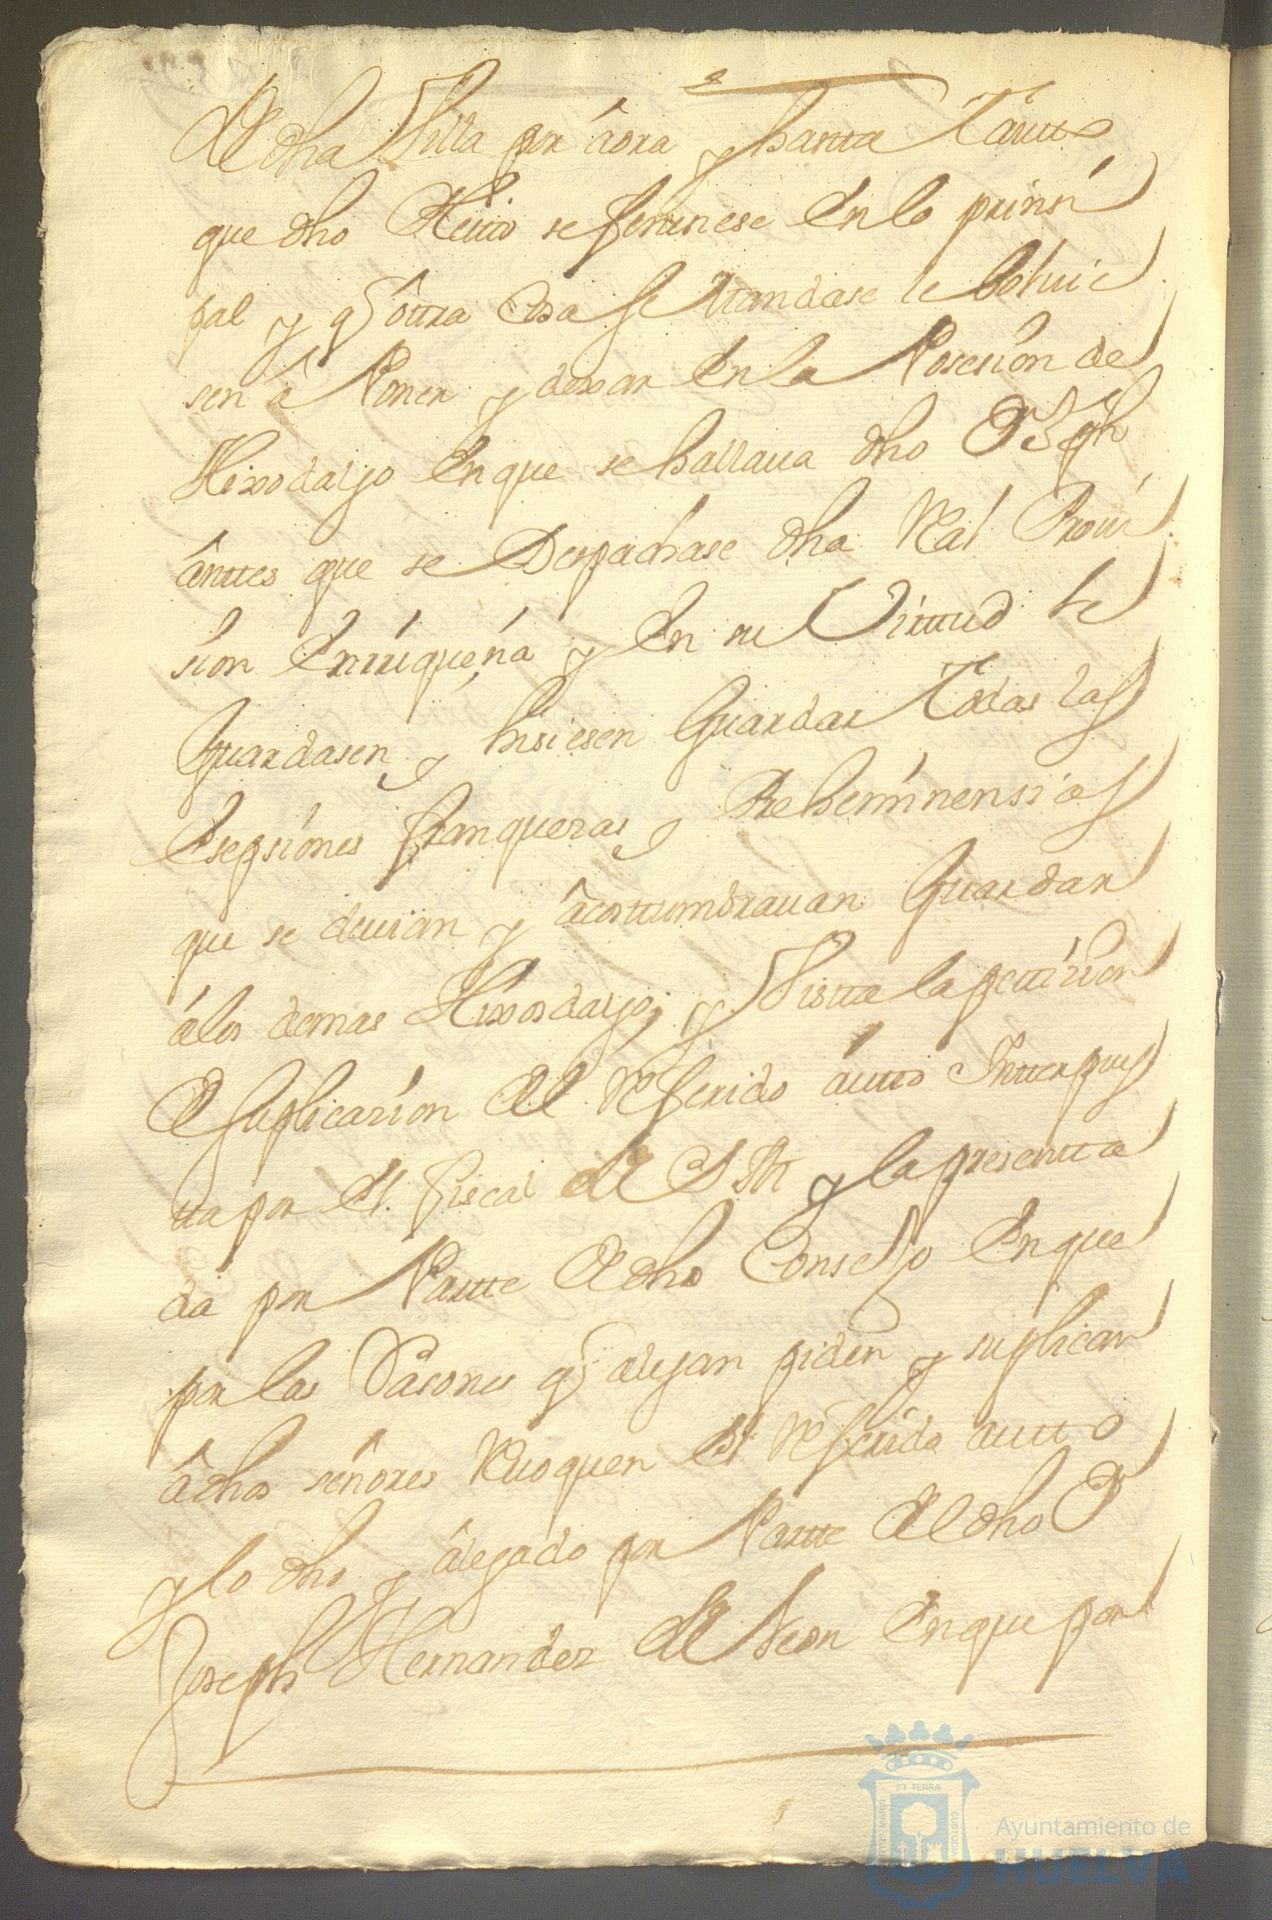 de dha Villa por aora y hasta Tantto
que dho Pleitto se feneciese en lo prinsi
pal y q̃ ottra cosa se mandase le bolvie
sen â Poner y dexar en la Posesion de
Hixodalgo en que se hallaua dho Dn Jph
ânttes que se Despachase dha Real Proui
sion enrriqueña y en su Virttud le
Guardasen y hisiesen Guardar Todas las
esepsiones franquezas y Preheminensias
que se deuian y âcosttumbrauan Guardar
âlos demas Hixosdalgo; y Vistta la petticion
de suplicacion del Referido autto Intterpues
tta por el fiscal de S M y la presentta
da por Partte de dho Consejo en que
por las Rasones q̃ alegan piden y suplican
âdhos señores Reuoquen el Referido autto
y lo dho y âlegado por Partte del dho Dn
Joseph Hernandez de Leon en que por
ET TERRAE
PORTUS MARIS
CUSTODIA
Ayuntamiento de
HUELVA